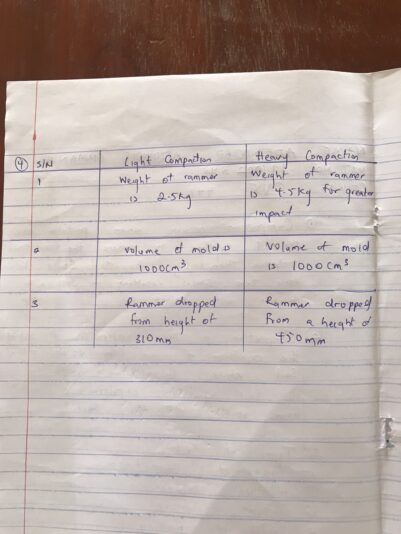 4 S/N Light Compaction Heavy Compaction
1 Weight of rammer
is 2.5kg
Weight of rammer
is 4.5kg for greater
impact
2 volume of mold is
1000cm³
Volume of mold
is 1000cm³
3 Rammer dropped
from height of
310mm
Rammer dropped
from a height of
450mm